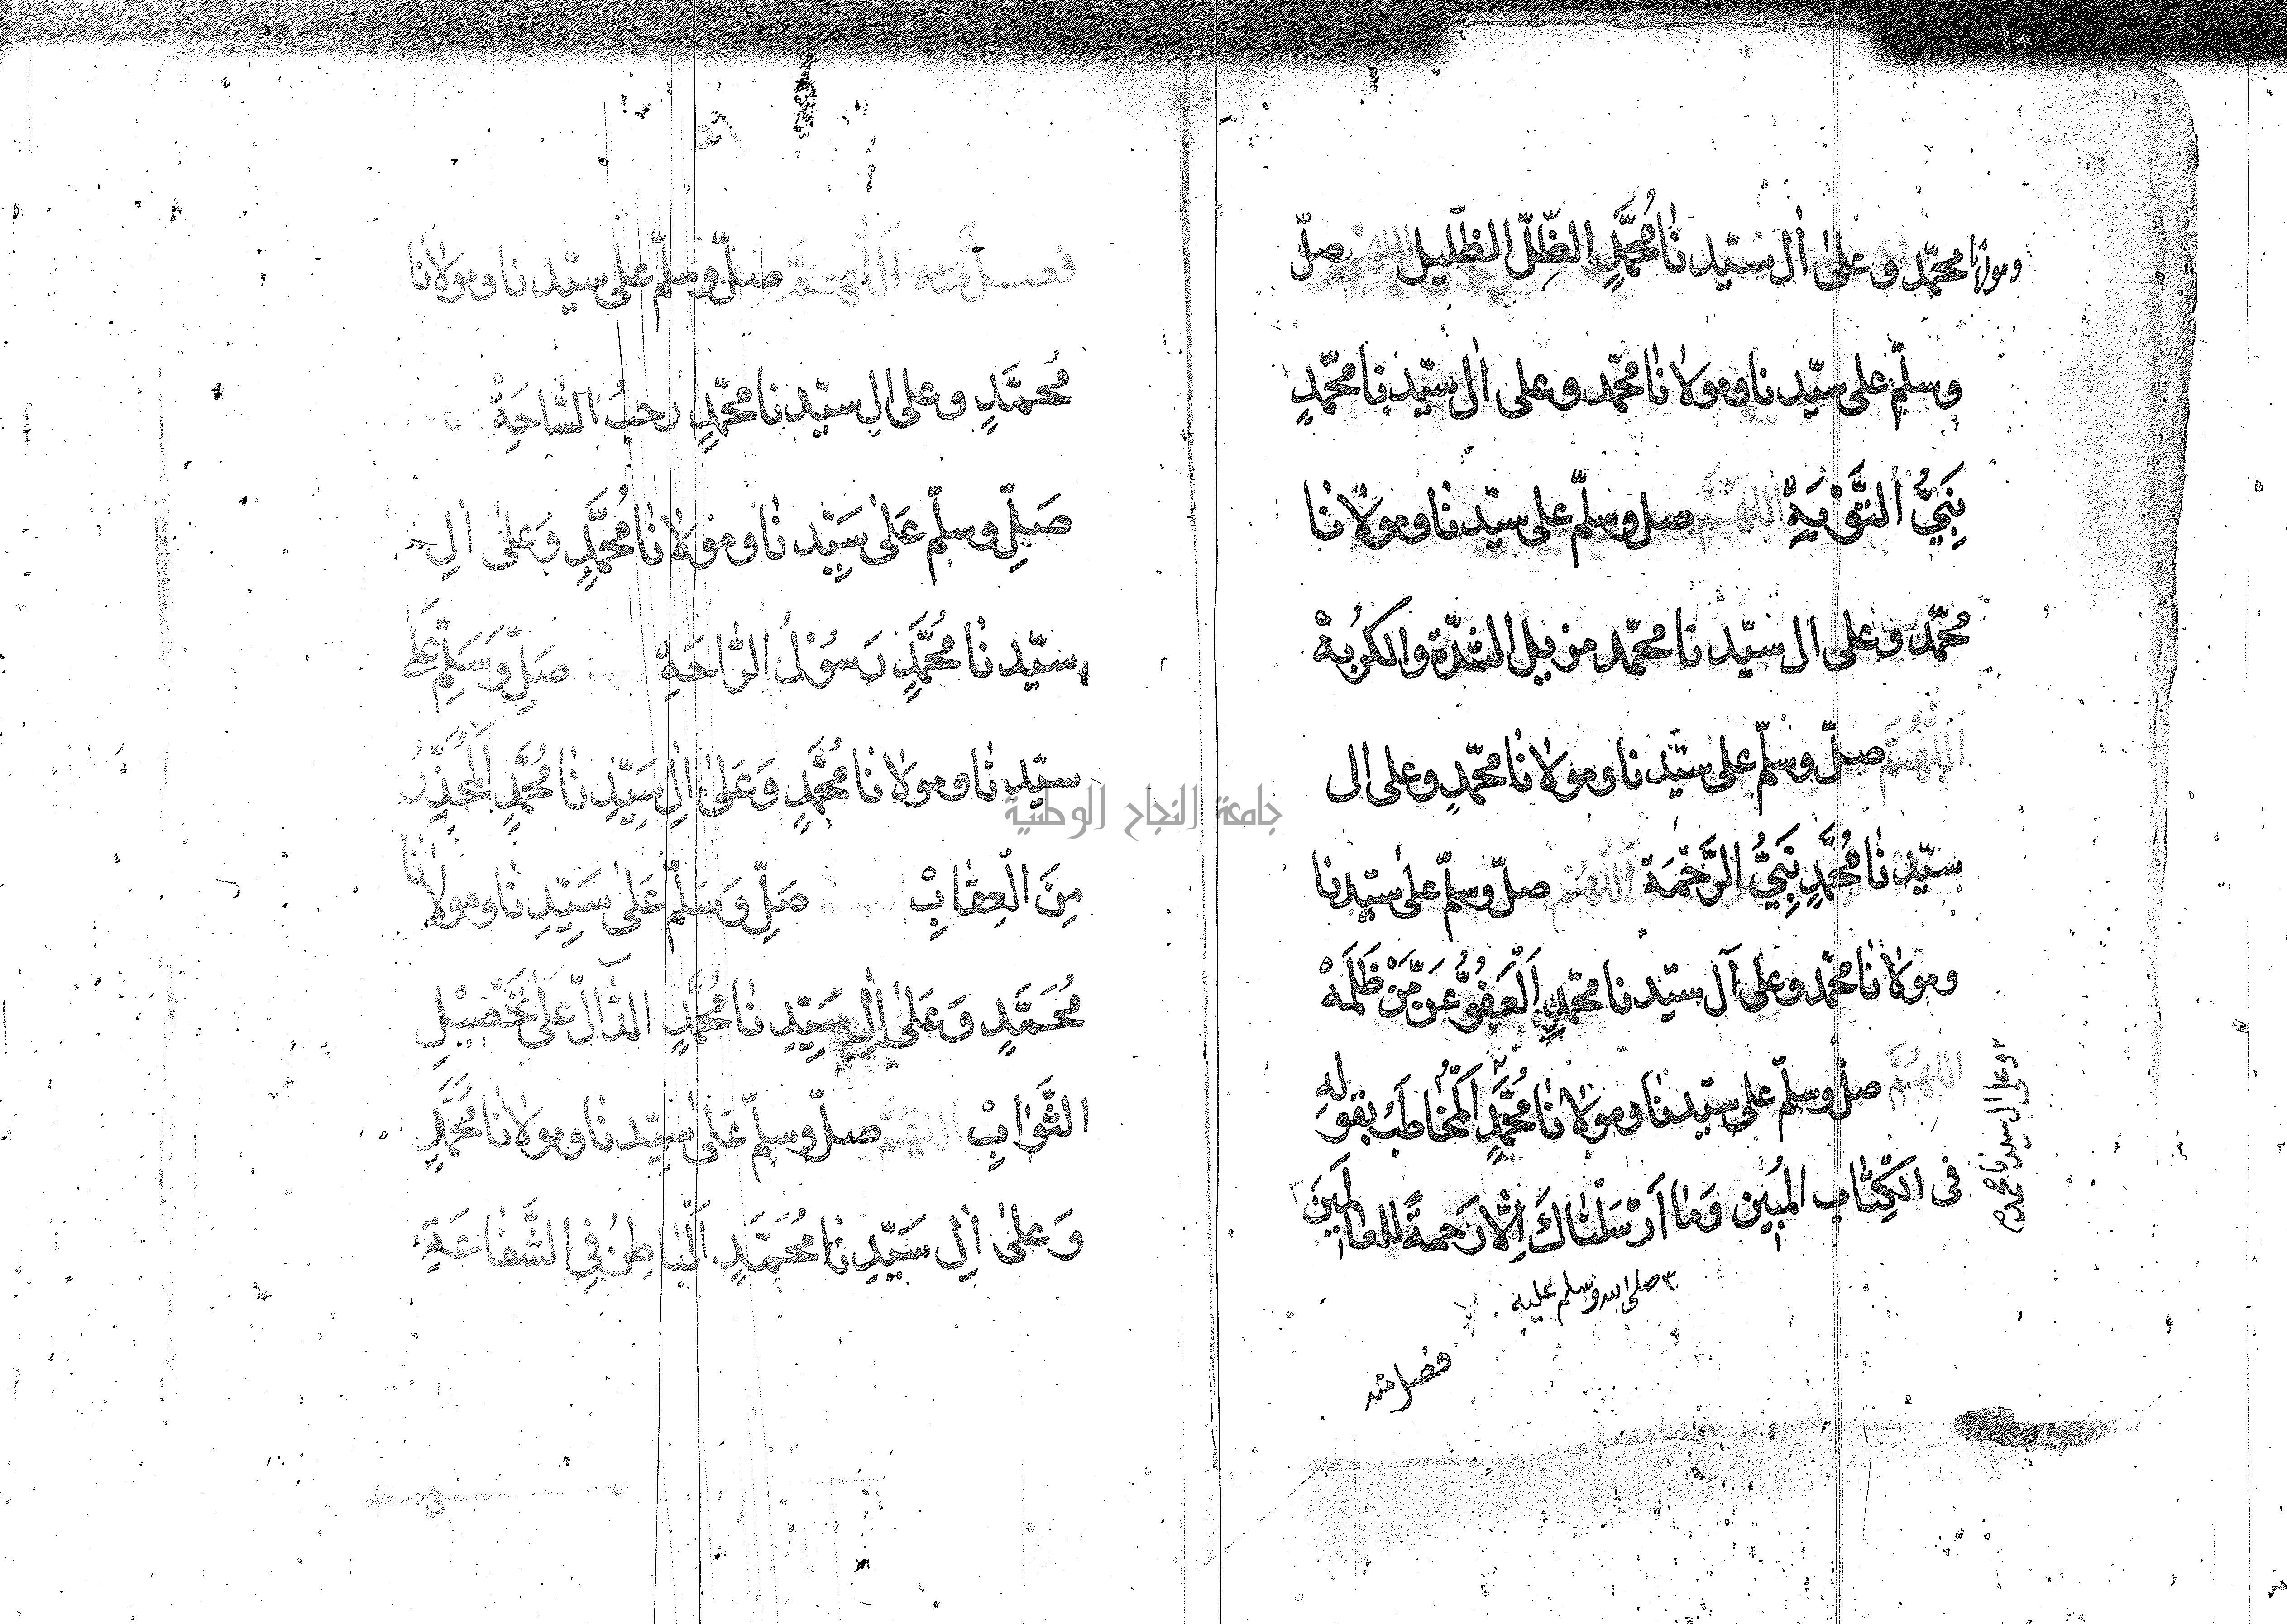 ومولانا محمّد وعلىٰ اٰل سيّدنا مُحَمَّدٍ الظِّلّ الظّليل اللهم صلّ
وسلّم على سيّدنا ومولانا محمّد وعلى اٰل سيّدنا محمّدٍ
نَبِيُّ التَّوْبَةِ اللهمّ صل وسلّم على سيّدنا ومولانا
محمّد وعلى ال سيّدنا محمّد مزيل الشدّة والكُربة
اَللّٰهُمَّ صلّ وسلّم على سيّدنا ومولانا محمّدٍ وعلى ال
سيّدنا مُحَمَّدٍ نَبِيُّ الرَّحْمَة اَللّٰهُمّ صلّ وسلّم على سيّدنا
ومولانا محمّد وعلى آل سيّدنا محمّدٍ اَلْعَفُوُّ عَنْ مَّنْ ظَلَمَهْ
اللهمَّ صلّ وسلّم على سيّدنا ومولانا مُحَمَّدٍ ٢ اَلْمُخاطَب بقوله
فى الكِتٰاب المُبين وَمٰا اَرْسَلْنٰاكَ اِلّا رَحمةً للعالمينَ ٣
٢ وعلى ال سيدنا محمد
٣ صلى الله وسلم عليه
فصل منه
فصل منه اَللّٰهمَّ صلّ وسلّم على سيّدنا ومولانا
مُحمَّدٍ وعلى الِ سيّدنا محمّدٍ رحبُ السّاحَةْ
صَلِّ وسلّم عَلىٰ سَيِّدنٰا ومَولانٰا مُحمَّدٍ وَعَلىٰ اٰلِ
سيّدنٰا مُحَمَّدٍ رَسُوْلُ الرّاحَةِ صَلِّ وَسَلِّم عَلَى
سيّدنٰا ومولانا مُحَمَّدٍ وَعَلىٰ اٰلِ سَيِّدِنٰا مُحَمَّدٍ اَلْمُحَذِّرُ
مِنَ الْعِقٰابِ صَلِّ وَسَلّم عَلىٰ سَيِّدِنٰا ومولانا
مُحَمَّدٍ وَعَلىٰ اٰلِ سَيِّدِنٰا مُحَمَّدٍ الدّٰالّ عَلىٰ تَحْصْيلِ
الثَّوٰابِ اللهُمَّ صلّ وسلّم عَلىٰ سيّدنٰا ومولانٰا مُحَمَّدٍ
وَعَلىٰ اٰلِ سَيِّدِنٰا مُحَمَّدٍ اَلْبٰاطِنُ فِي الشَّفٰاعَةِ
جامعة النجاح الوطنية